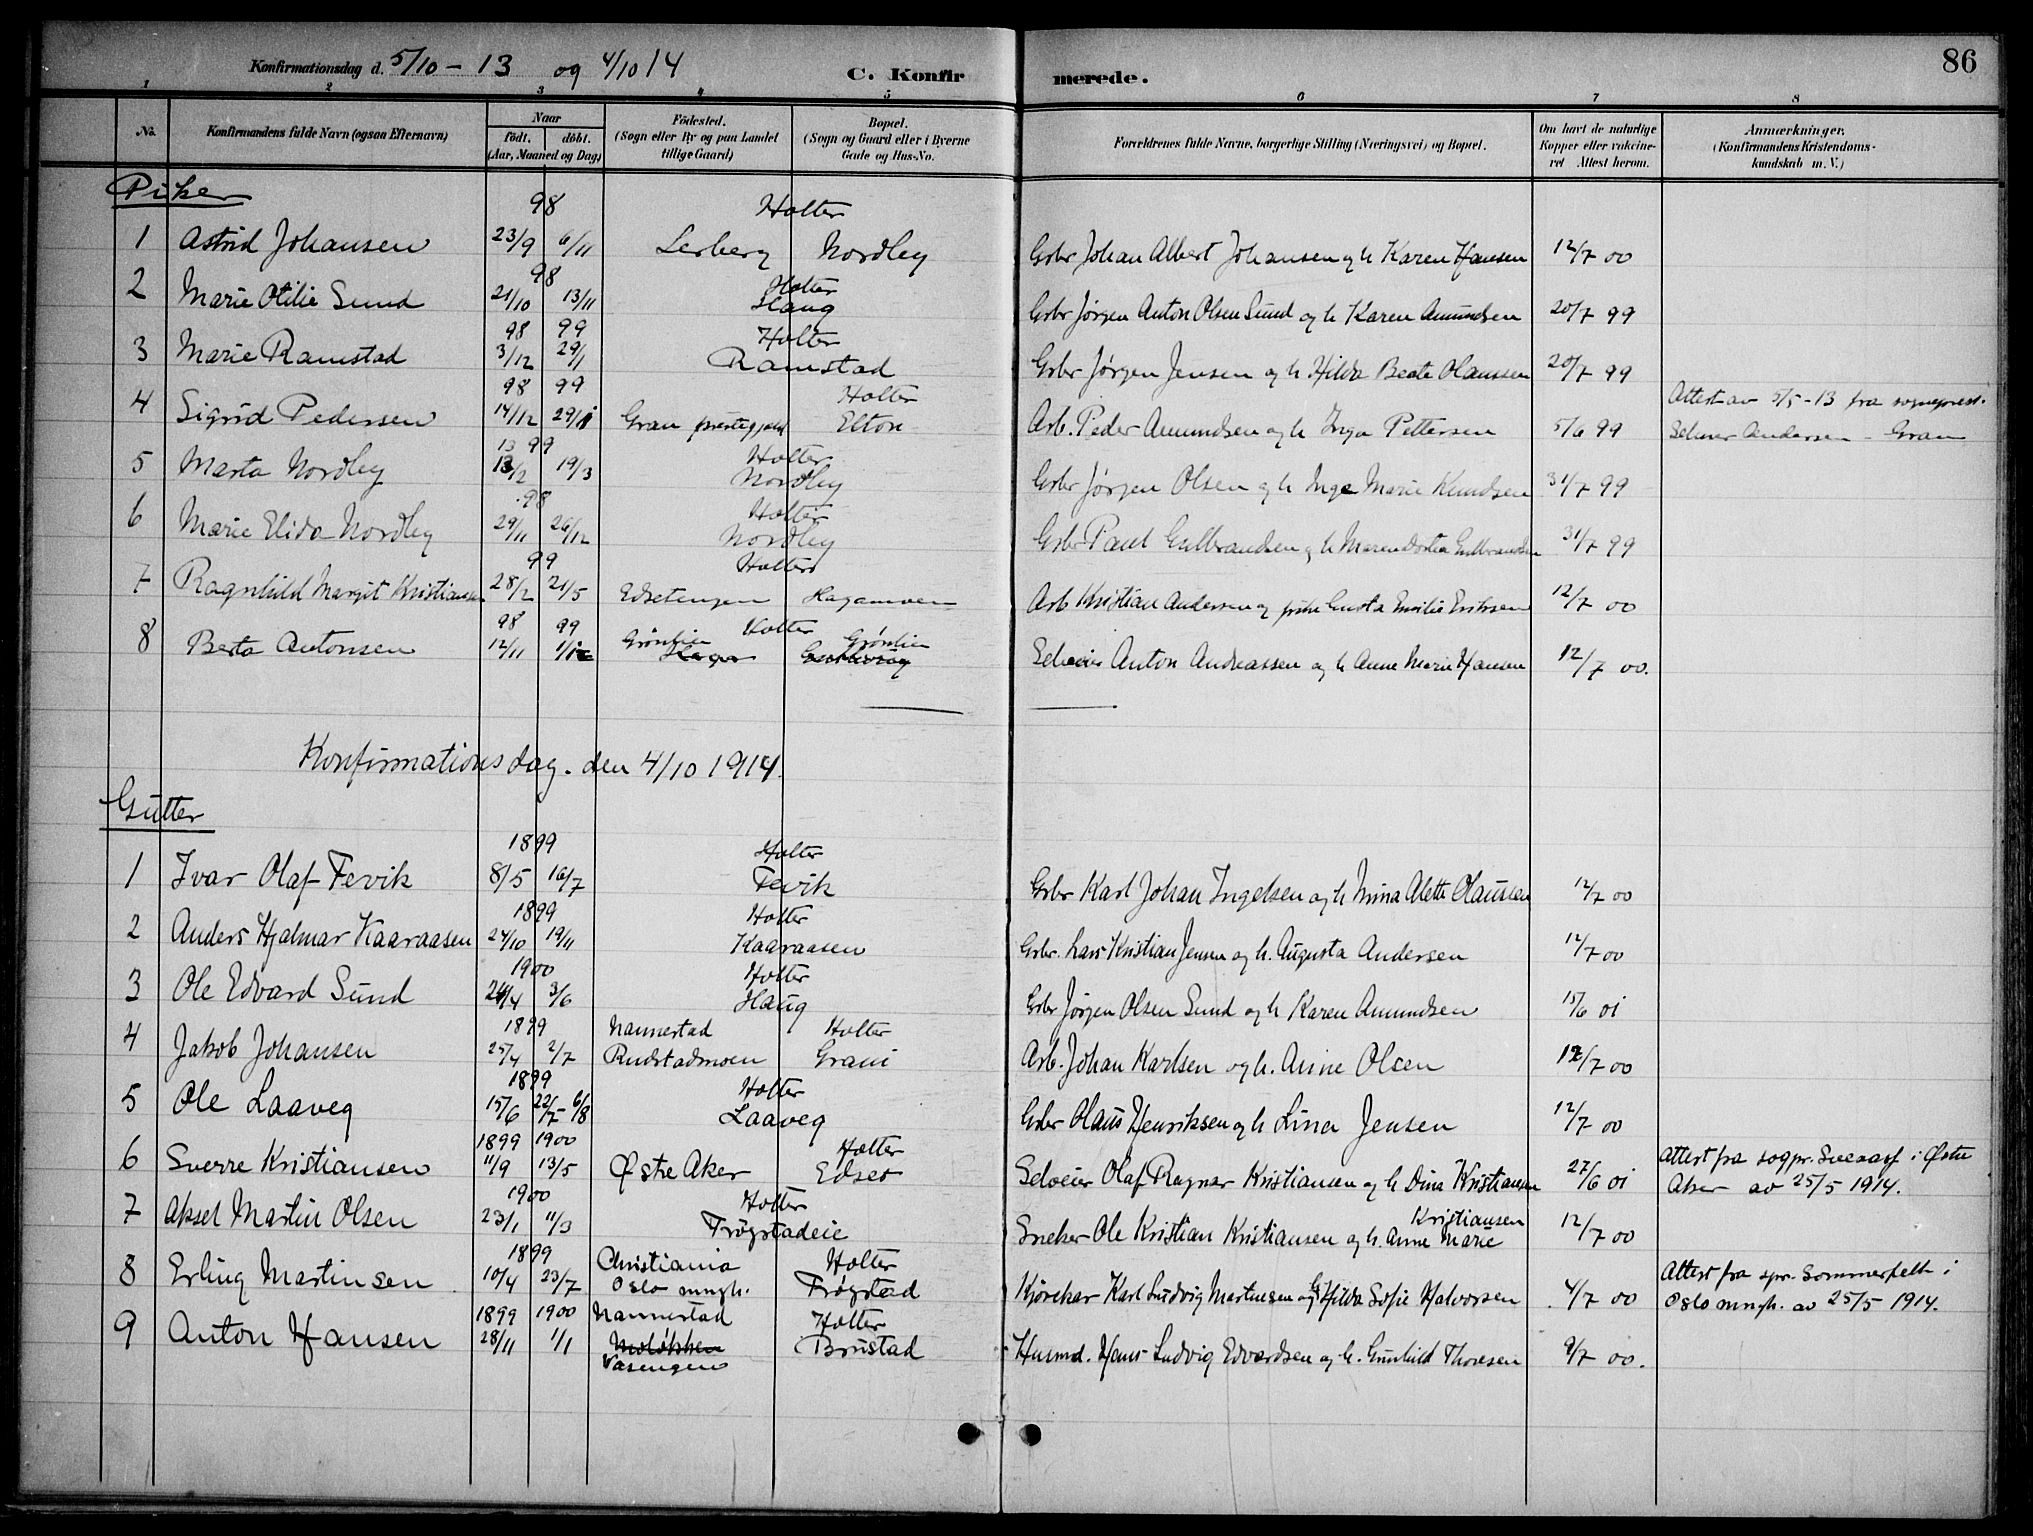 86
Konfirmationsdag d. 5/10 - 13 og 4/10 14 C. Konfirmerede.
1 2 3 4 5 6 7 8
No. Konfirmandens fulde Navn (ogsaa Efternavn) Naar født. døbt. (Aar, Maaned og Dag) Fødested. (Sogn eller By og paa Landet tillige Gaard) Bopæl. (Sogn og Gaard eller i Byerne Gade og Hus-No. Forældrenes fulde Navne, borgerlige Stilling (Næringsvei) og Bopæl. Om havt de naturlige Kopper eller vakcineret Attest herom. Anmærkninger. (Konfirmandens Kristendomskundskab m. V.)
Piker
98 Holter
1 Astrid Johansen 23/9 6/11 Lerberg Nordby Gbr Johan Albert Johansen og h Karen Hansen 12/7 00
98 Holter
2 Marie Otilie Sund 21/10 13/11 Haug Gbr Jørgen Anton Olsen Sund og h Karen Amundsen 20/7 99
98 99 Holter
3 Marie Ramstad 3/12 29/1 Ramstad Gbr Jørgen Jensen og h. Hilda Beate Olaussen 20/7 99
98 99 Holter Attest av 5/5-13 fra sogneprest
4 Sigrid Pedersen 14/12 29/1 Gran prestegjeld Elton Arb. Peder Amundsen og h Inga Pettersen 5/6 99 Andersen - Gran
13 99 Holter
5 Marta Nordby 13/2 19/3 Nordby Gbr Jørgen Olsen og h Inge Marie Knudsen 31/7 99
98 Holter
6 Marie Elida Nordby 29/11 26/12 Nordby Gbr Paul Gulbrandsen og h Maren Dortea Gulbrandsen 31/7 99
99 Holter
7 Ragnhild Margit Kristiansen 28/2 21/5 Edsetengen Hagamoen Arb Kristian Andersen og Gusta Emilie Eriksen 12/7 00
98 99 Grønlien Holter Grønlien
8 Berta Antonsen 12/11 Selveier Anton Andreassen og h Anne Marie Hansen 12/7 00.
Konfirmationsdag. den 4/10 1914.
Gutter
1899 Holter
1 Ivar Olaf Fevik 8/5 16/7 Fevik Gbr Karl Johan Ingelsen og h Mina Alette Olaussen 12/7 00
1899 Holter
2 Anders Hjalmar Kaaraasen 24/10 19/11 Kaaraasen Gbr. Lars Kristian Jensen og h. Augusta Andersen 12/7 00
1900 Holter
3 Ole Edvard Sund 24/4 3/6 Haug Gbr Jørgen Olsen Sund og h Karen Amundsen 15/6 01
1899 Nannestad Holter
4 Jakob Johansen 25/4 2/7 Rudstadmoen Grani Arb. Johan Karlsen og h. Anne Olsen 12/7 00
1899 Holter
5 Ole Laaveg 15/6 22/7 6/8 Laaveg Gbr Olaus Henriksen og h Lina Jensen 12/7 00
1899 1900 Holter Attest fra sogpr. i Østre
6 Sverre Kristiansen 11/9 13/5 Østre Aker Edset Selveier Olaf Ragnar Kristiansen og h Dina Kristiansen 27/6 01 Aker av 25/5 1914.
1900 Holter Kristiansen
7 Aksel Martin Olsen 23/1 11/3 Trøgstadeie Sneker Ole Kristian Kristiansen og h. Anne Marie 12/7 00
1899 Christiania Holter Attest fra spr. Sommerfelt i
8 Erling Martinsen 10/4 23/7 Oslo mngh. Trøgstad Kjørekar Karl Ludvig Martinsen og Hilda Sofie Halvorsen 4/7 00 Oslo mngh. av 25/5 1914.
1899 1900 Nannestad Holter
9 Anton Hansen 28/11 1/1 Brustad Husmd. Hans Ludvig Edvardsen og h. Gunhild Thoresen 9/7 00.
Vasengen